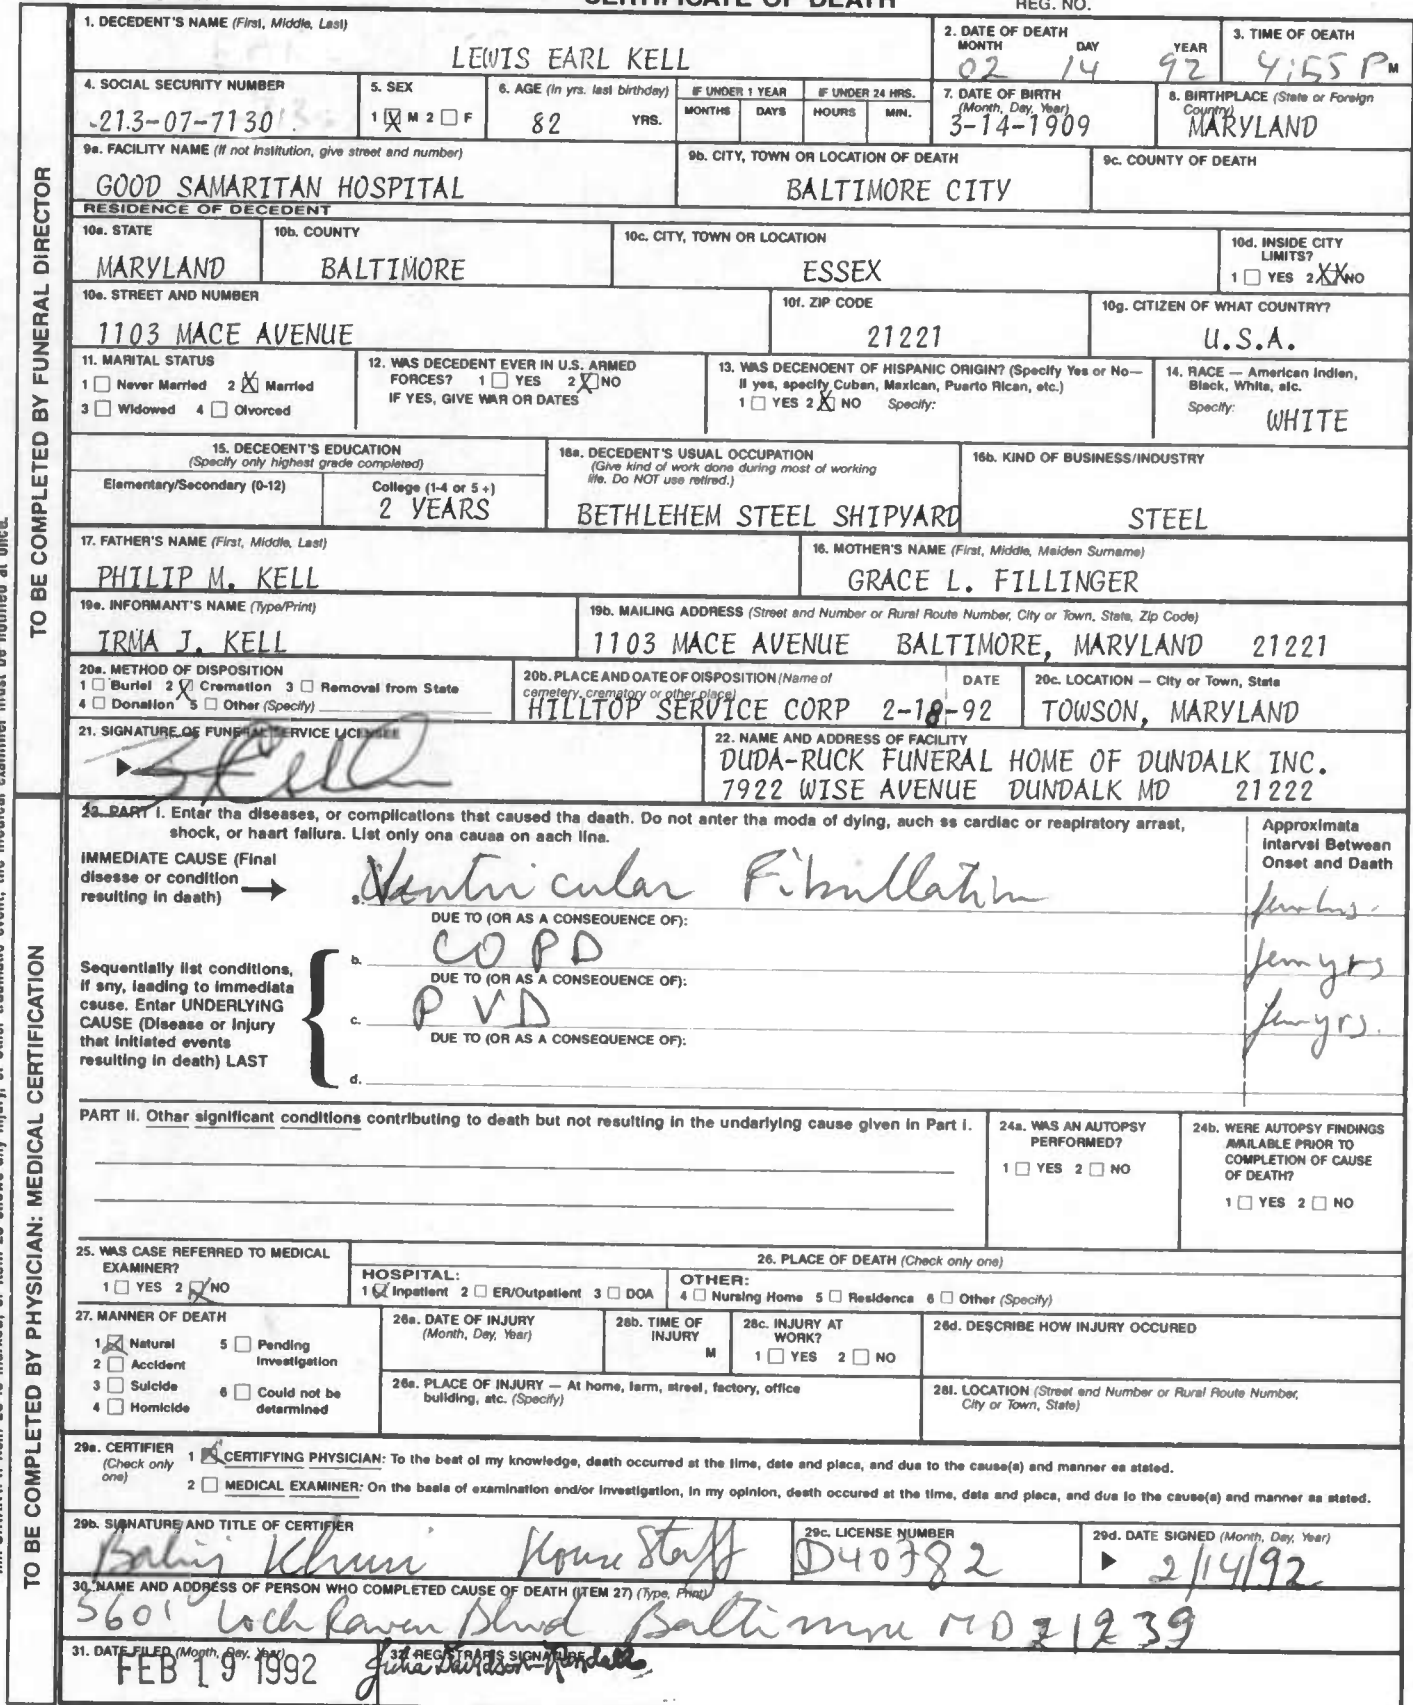 CERTIFICATE OF DEATH REG. NO.
1. DECEDENT'S NAME (First, Middle, Last)
LEWIS EARL KELL
2. DATE OF DEATH
MONTH DAY YEAR
02 14 92
3. TIME OF DEATH
4:55 P M
4. SOCIAL SECURITY NUMBER
213-07-7130
5. SEX
1 ☒ M 2 ☐ F
6. AGE (In yrs. last birthday)
82 YRS.
IF UNDER 1 YEAR
MONTHS DAYS
IF UNDER 24 HRS.
HOURS MIN.
7. DATE OF BIRTH
(Month, Day, Year)
3-14-1909
8. BIRTHPLACE (State or Foreign
Country)
MARYLAND
9a. FACILITY NAME (If not institution, give street and number)
GOOD SAMARITAN HOSPITAL
9b. CITY, TOWN OR LOCATION OF DEATH
BALTIMORE CITY
9c. COUNTY OF DEATH
RESIDENCE OF DECEDENT
10a. STATE
MARYLAND
10b. COUNTY
BALTIMORE
10c. CITY, TOWN OR LOCATION
ESSEX
10d. INSIDE CITY
LIMITS?
1 ☐ YES 2 XX NO
10e. STREET AND NUMBER
1103 MACE AVENUE
10f. ZIP CODE
21221
10g. CITIZEN OF WHAT COUNTRY?
U.S.A.
11. MARITAL STATUS
1 ☐ Never Married 2 ☒ Married
3 ☐ Widowed 4 ☐ Divorced
12. WAS DECEDENT EVER IN U.S. ARMED
FORCES? 1 ☐ YES 2 ☒ NO
IF YES, GIVE WAR OR DATES
13. WAS DECENDENT OF HISPANIC ORIGIN? (Specify Yes or No—
If yes, specify Cuban, Mexican, Puerto Rican, etc.)
1 ☐ YES 2 ☒ NO Specify:
14. RACE — American Indian,
Black, White, etc.
Specify: WHITE
15. DECEDENT'S EDUCATION
(Specify only highest grade completed)
Elementary/Secondary (0-12)
College (1-4 or 5+)
2 YEARS
16a. DECEDENT'S USUAL OCCUPATION
(Give kind of work done during most of working
life. Do NOT use retired.)
BETHLEHEM STEEL SHIPYARD
16b. KIND OF BUSINESS/INDUSTRY
STEEL
17. FATHER'S NAME (First, Middle, Last)
PHILIP M. KELL
18. MOTHER'S NAME (First, Middle, Maiden Surname)
GRACE L. FILLINGER
19a. INFORMANT'S NAME (Type/Print)
IRMA J. KELL
19b. MAILING ADDRESS (Street and Number or Rural Route Number, City or Town, State, Zip Code)
1103 MACE AVENUE BALTIMORE, MARYLAND 21221
20a. METHOD OF DISPOSITION
1 ☐ Burial 2 ☒ Cremation 3 ☐ Removal from State
4 ☐ Donation 5 ☐ Other (Specify)
20b. PLACE AND DATE OF DISPOSITION (Name of
cemetery, crematory or other place) DATE
HILLTOP SERVICE CORP 2-18-92
20c. LOCATION — City or Town, State
TOWSON, MARYLAND
21. SIGNATURE OF FUNERAL SERVICE LICENSEE
22. NAME AND ADDRESS OF FACILITY
DUDA-RUCK FUNERAL HOME OF DUNDALK INC.
7922 WISE AVENUE DUNDALK MD 21222
23. PART I. Enter the diseases, or complications that caused the death. Do not enter the mode of dying, such as cardiac or respiratory arrest,
shock, or heart failure. List only one cause on each line.
Approximate
Interval Between
Onset and Death
IMMEDIATE CAUSE (Final
disease or condition
resulting in death) →
a. Ventricular Fibrillation few hrs.
DUE TO (OR AS A CONSEQUENCE OF):
b. COPD few yrs
DUE TO (OR AS A CONSEQUENCE OF):
c. PVD few yrs.
DUE TO (OR AS A CONSEQUENCE OF):
d.
Sequentially list conditions,
if any, leading to immediate
cause. Enter UNDERLYING
CAUSE (Disease or injury
that initiated events
resulting in death) LAST
PART II. Other significant conditions contributing to death but not resulting in the underlying cause given in Part I.
24a. WAS AN AUTOPSY
PERFORMED?
1 ☐ YES 2 ☐ NO
24b. WERE AUTOPSY FINDINGS
AVAILABLE PRIOR TO
COMPLETION OF CAUSE
OF DEATH?
1 ☐ YES 2 ☐ NO
25. WAS CASE REFERRED TO MEDICAL
EXAMINER?
1 ☐ YES 2 ☒ NO
26. PLACE OF DEATH (Check only one)
HOSPITAL:
1 ☒ Inpatient 2 ☐ ER/Outpatient 3 ☐ DOA
OTHER:
4 ☐ Nursing Home 5 ☐ Residence 6 ☐ Other (Specify)
27. MANNER OF DEATH
1 ☒ Natural 5 ☐ Pending
2 ☐ Accident Investigation
3 ☐ Suicide 6 ☐ Could not be
4 ☐ Homicide determined
28a. DATE OF INJURY
(Month, Day, Year)
28b. TIME OF
INJURY
M
28c. INJURY AT
WORK?
1 ☐ YES 2 ☐ NO
28d. DESCRIBE HOW INJURY OCCURED
28e. PLACE OF INJURY — At home, farm, street, factory, office
building, etc. (Specify)
28f. LOCATION (Street and Number or Rural Route Number,
City or Town, State)
29a. CERTIFIER
(Check only
one)
1 ☒ CERTIFYING PHYSICIAN: To the best of my knowledge, death occurred at the time, date and place, and due to the cause(s) and manner as stated.
2 ☐ MEDICAL EXAMINER: On the basis of examination and/or investigation, in my opinion, death occured at the time, date and place, and due to the cause(s) and manner as stated.
29b. SIGNATURE AND TITLE OF CERTIFIER
House Staff
29c. LICENSE NUMBER
D40782
29d. DATE SIGNED (Month, Day, Year)
2/14/92
30. NAME AND ADDRESS OF PERSON WHO COMPLETED CAUSE OF DEATH (ITEM 27) (Type, Print)
5601 Loch Raven Blvd Baltimore MD 21239
31. DATE FILED (Month, Day, Year)
FEB 19 1992
32. REGISTRAR'S SIGNATURE
Julia Davidson-Randall
TO BE COMPLETED BY FUNERAL DIRECTOR
TO BE COMPLETED BY PHYSICIAN: MEDICAL CERTIFICATION